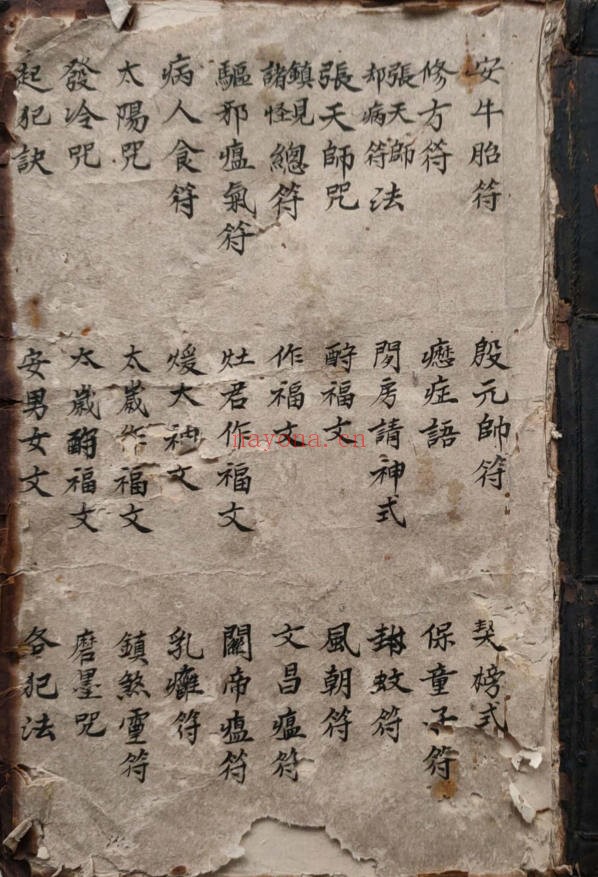 安牛胎符
修方符
張天師却病符法
張天師咒
鎮見諸怪總符
驅邪瘟氣符
病人食符
太陽咒
發冷咒
起犯訣
殷元帥符
症語
房請神式
酧福文
作福文
灶君作福文
煖大神文
太歲作福文
太歲酧福文
安男女文
契榜式
保童子符
封蚊符
風朝符
文昌瘟符
關帝瘟符
乳癰符
鎮煞靈符
磨墨咒
各犯法
nayona.cn